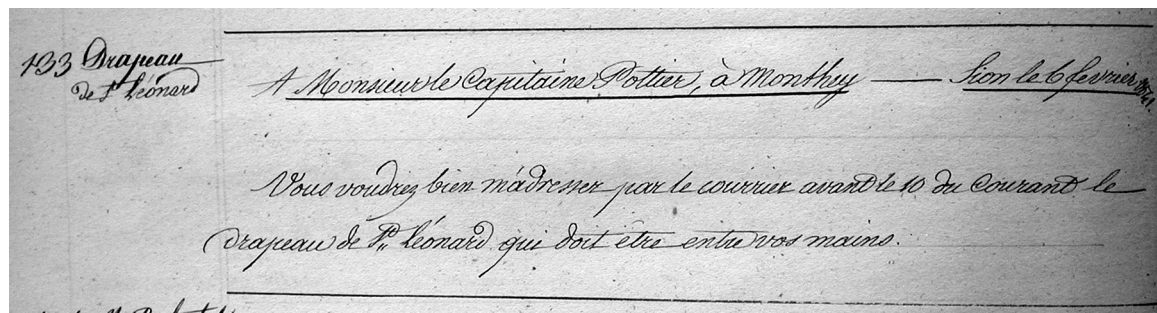 133 Drapeau
de St Léonard
A Monsieur le Capitaine Pottier, à Monthey — Sion le 6 fevrier 1871.
Vous voudrez bien m'adresser par le courrier avant le 10 du Courant le
drapeau de St Léonard qui doit être entre vos mains.